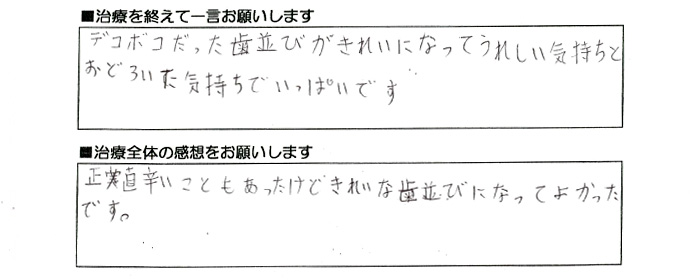 ■治療を終えて一言お願いします
デコボコだった歯並びがきれいになってうれしい気持ちと
おどろいた気持ちでいっぱいです
■治療全体の感想をお願いします
正実直辛いこともあったけどきれいな歯並びになってよかった
です。